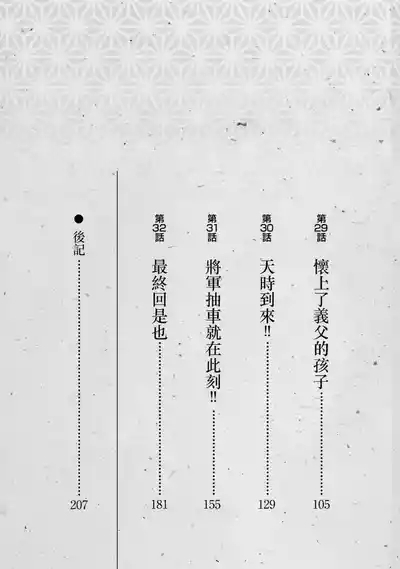 第29話 懷上了義父的孩子 105
第30話 天時到來!! 129
第31話 將軍抽車就在此刻!! 155
第32話 最終回是也 181
● 後記 207